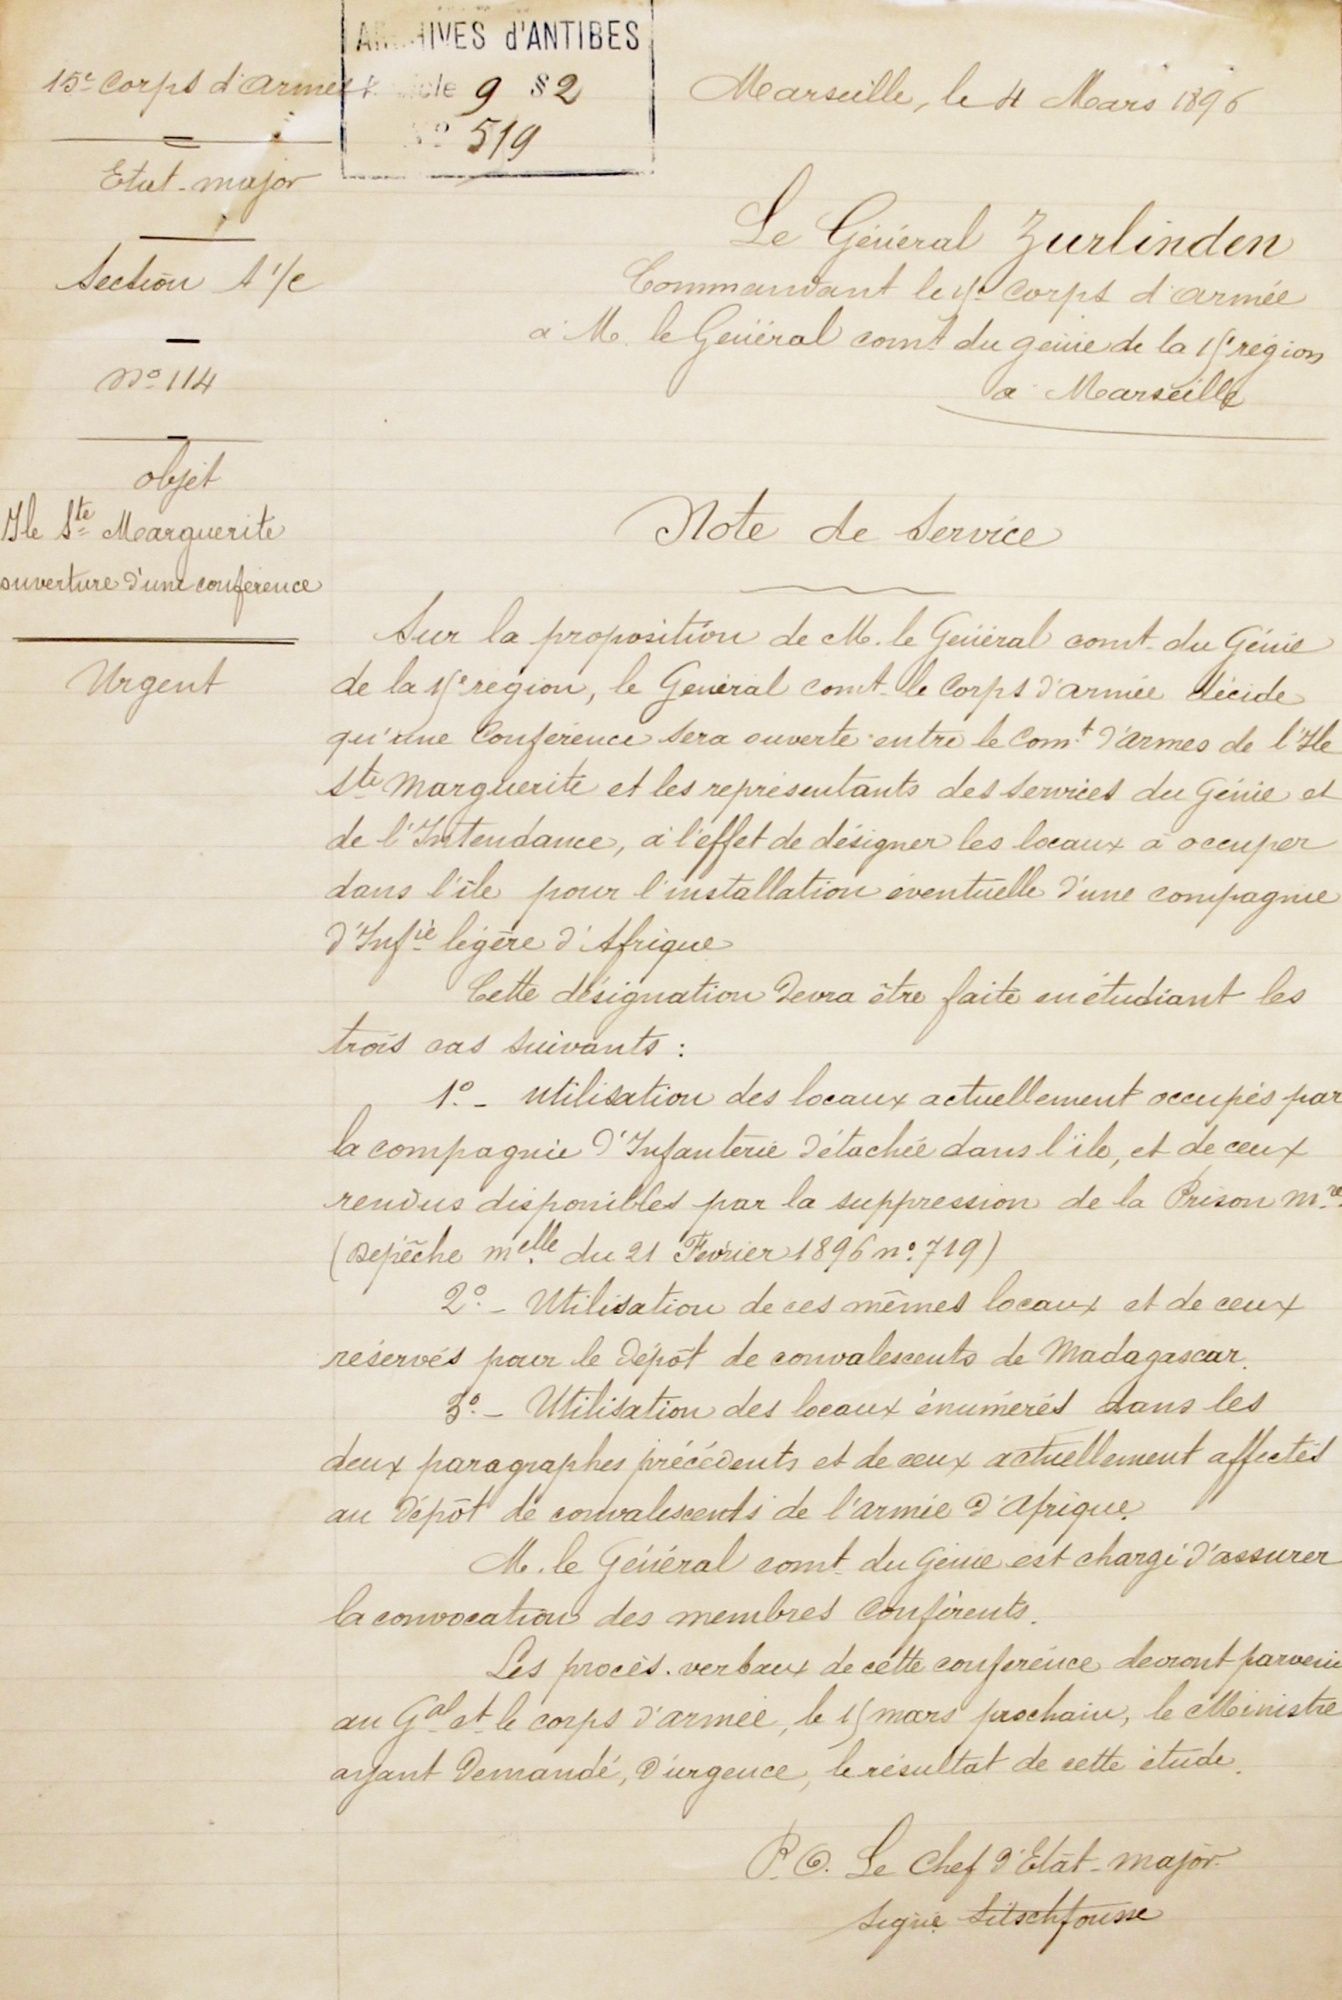 ARCHIVES d'ANTIBES
Article 9 § 2
N° 519
15e Corps d'armée
Etat-major
Section A 1/c
N° 114
objet
Ile Ste Marguerite
ouverture d'une conférence
Urgent
Marseille, le 4 Mars 1896
Le Général Zurlinden
Commandant le 15e Corps d'armée
à M. le Général comt du génie de la 15e région
à Marseille
Note de Service
Sur la proposition de M. le Général comt du Génie
de la 15e région, le Général comt le Corps d'armée décide
qu'une Conférence sera ouverte entre le Comt d'armes de l'Ile
Ste Marguerite et les représentants des services du Génie et
de l'Intendance, à l'effet de désigner les locaux à occuper
dans l'île pour l'installation éventuelle d'une compagnie
d'Infie légère d'Afrique
Cette désignation devra être faite en étudiant les
trois cas suivants :
1°- Utilisation des locaux actuellement occupés par
la compagnie d'Infanterie détachée dans l'île, et de ceux
rendus disponibles par la suppression de la Prison mre
(Dépêche melle du 21 Février 1896 n° 719)
2°- Utilisation de ces mêmes locaux et de ceux
réservés pour le dépôt de convalescents de Madagascar.
3°- Utilisation des locaux énumérés dans les
deux paragraphes précédents et de ceux actuellement affectés
au dépôt de convalescents de l'armée d'Afrique.
M. le Général comt du Génie est chargé d'assurer
la convocation des membres conférents.
Les procès-verbaux de cette conférence devront parvenir
au Gal et le corps d'armée, le 15 mars prochain, le Ministre
ayant demandé, d'urgence, le résultat de cette étude.
P.O. Le Chef d'Etat-major
signé